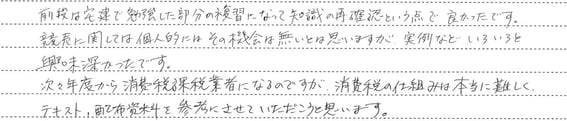 前段は宅建で勉強した部分の複習になって知識の再確認という点で良かったです。
競売に関しては個人的にはその機会は無いとは思いますが、実例などいろいろと
興味深かったです。
次々年度から消費税課税業者になるのですが、消費税の仕組みは本当に難しく、
テキスト,配布資料を参考にさせていただこうと思います。